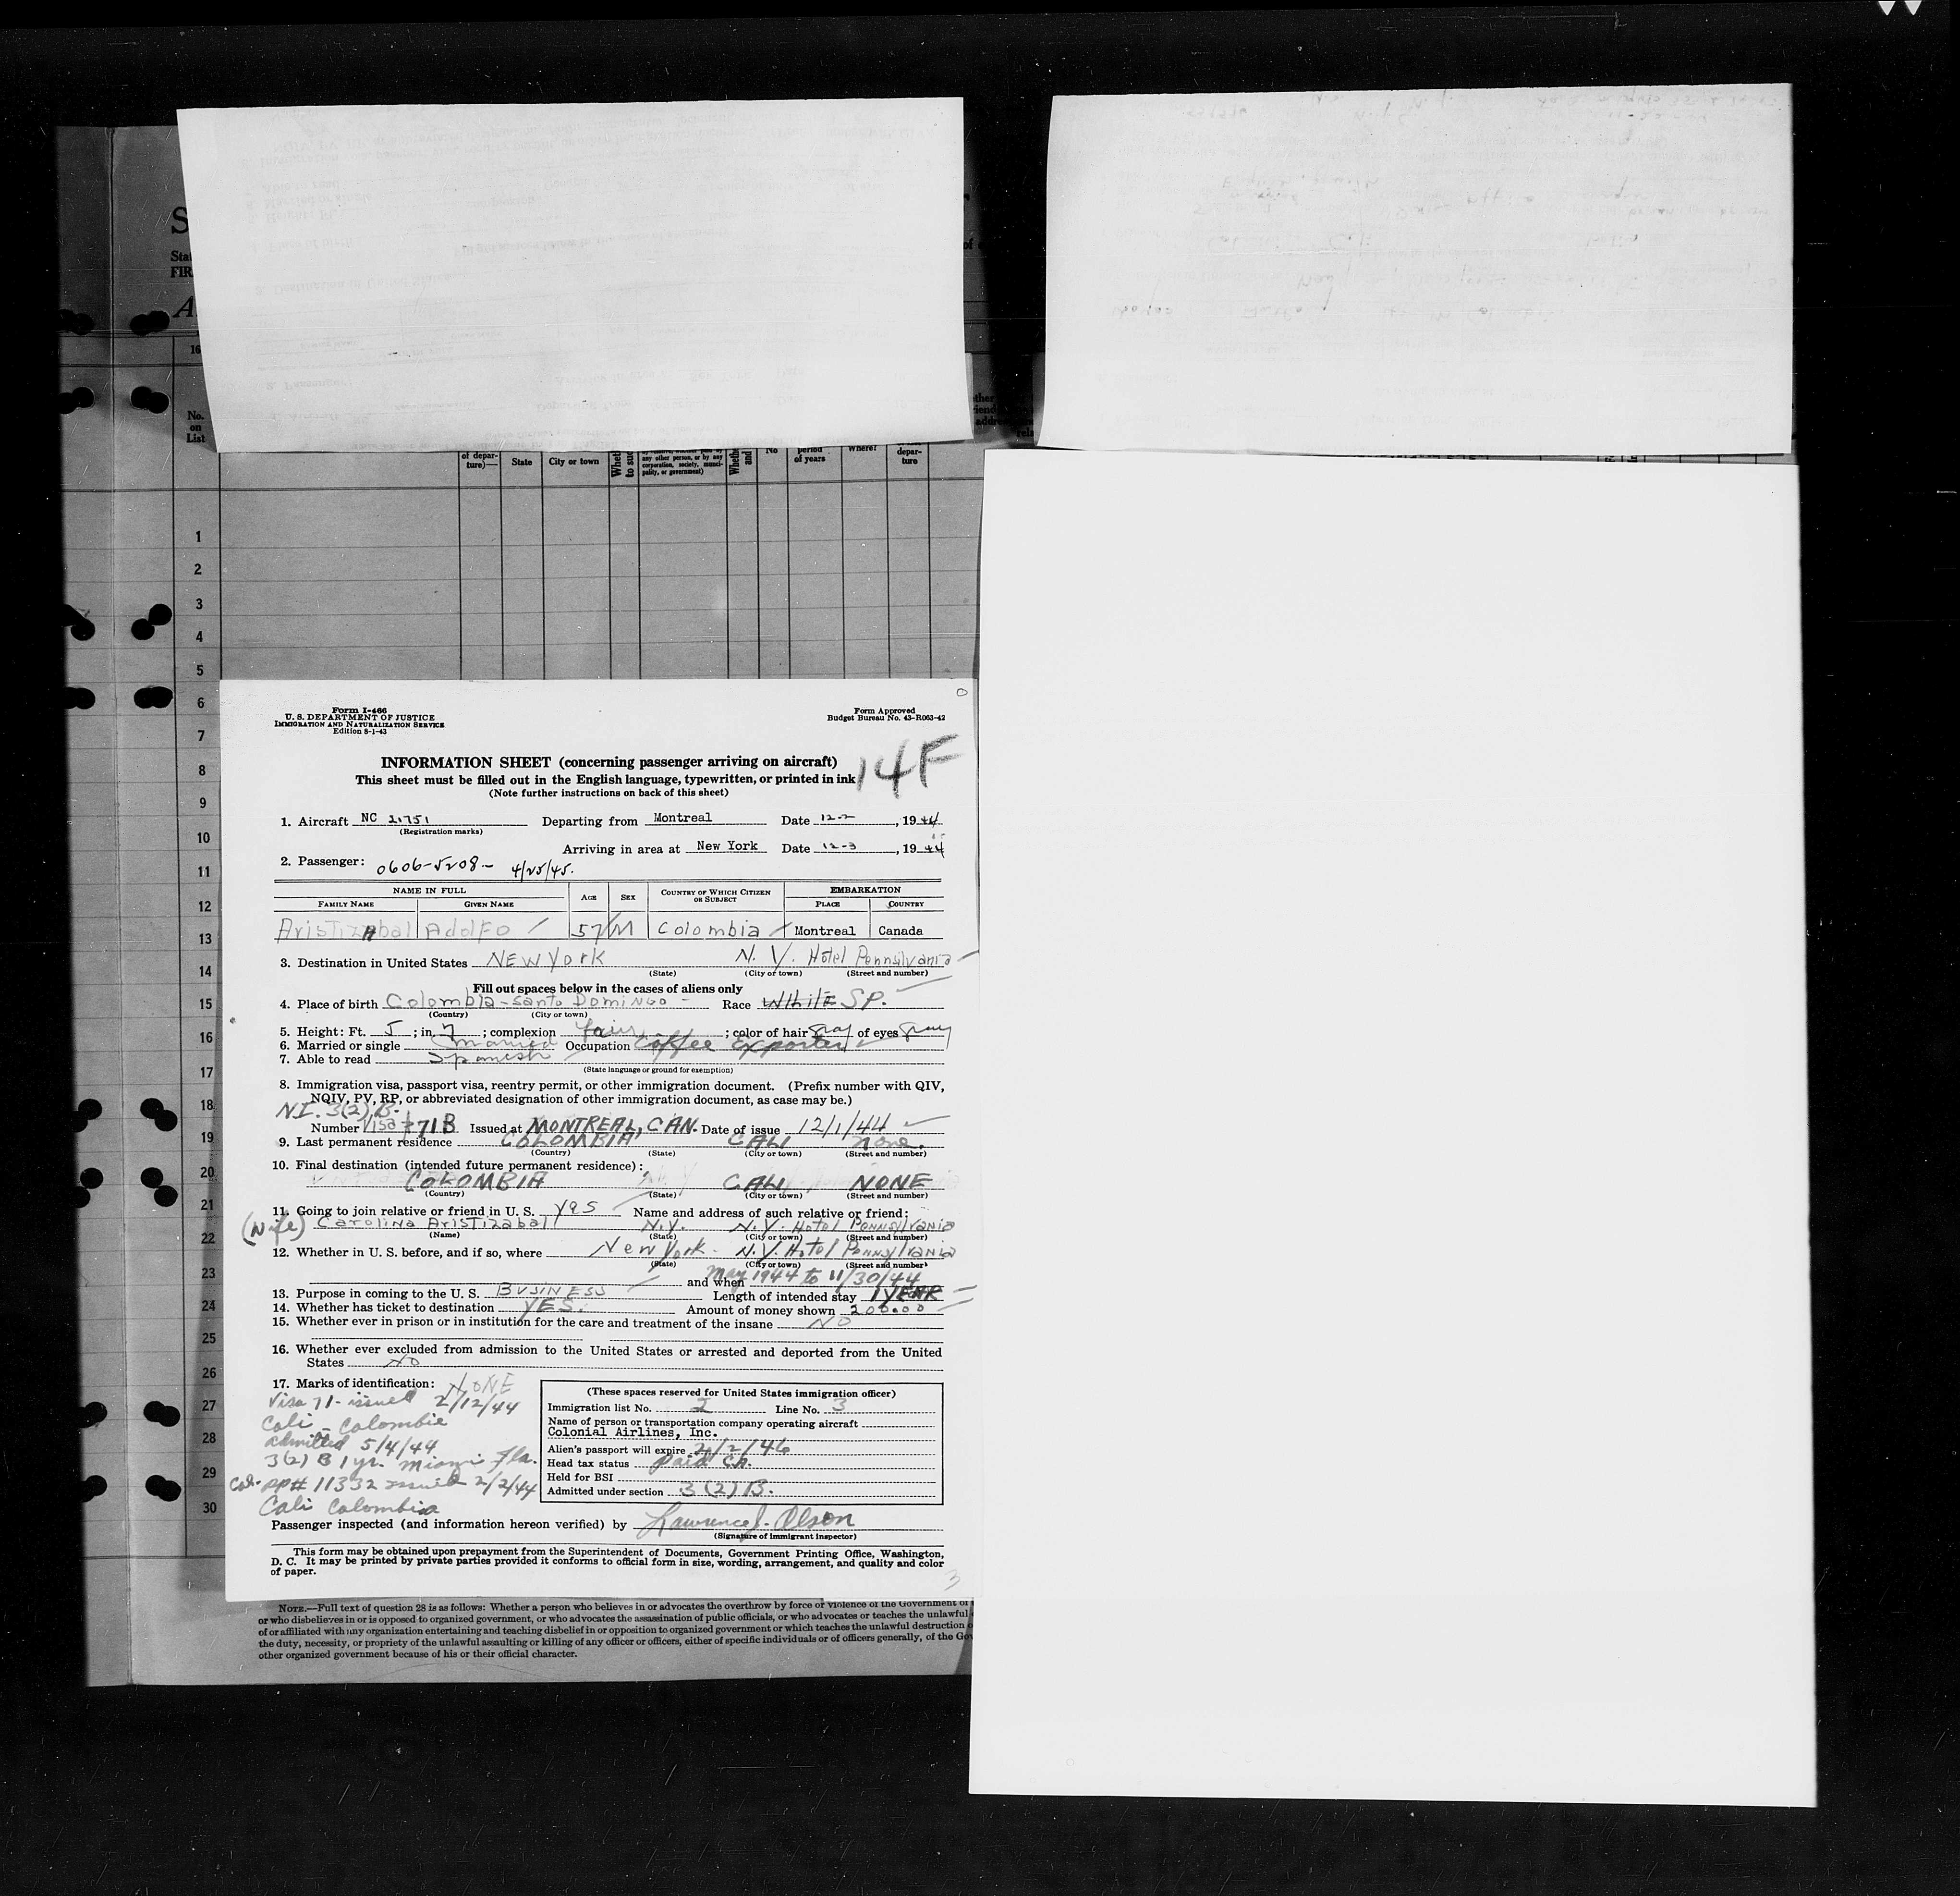 S
Sta
FIR
A
16
No.
on
List
of depar-
ture)—
State
City or town
No
period
of years
Where?
depar-
ture
1
2
3
4
5
6
7
8
9
10
11
12
13
14
15
16
17
18
19
20
21
22
23
24
25
26
27
28
29
30
Form I-466
U. S. DEPARTMENT OF JUSTICE
IMMIGRATION AND NATURALIZATION SERVICE
Edition 8-1-43
Form Approved
Budget Bureau No. 43-R063-42
14F
INFORMATION SHEET (concerning passenger arriving on aircraft)
This sheet must be filled out in the English language, typewritten, or printed in ink
(Note further instructions on back of this sheet)
1. Aircraft NC 21751 Departing from Montreal Date 12-2, 1944
(Registration marks)
Arriving in area at New York Date 12-3, 1944
2. Passenger: 0606-5208- 4/25/45.
NAME IN FULL AGE SEX COUNTRY OF WHICH CITIZEN OR SUBJECT EMBARKATION
FAMILY NAME GIVEN NAME PLACE COUNTRY
Aristizabal Adolfo 57 M Colombia Montreal Canada
3. Destination in United States NEW YORK N. Y. Hotel Pennsilvania
(State) (City or town) (Street and number)
Fill out spaces below in the cases of aliens only
4. Place of birth Colombia-Santo Domingo Race WhitE SP.
(Country) (City or town)
5. Height: Ft. 5; in. 7; complexion fair; color of hair gray of eyes gray
6. Married or single married Occupation Coffee Exporter
7. Able to read Spanish
(State language or ground for exemption)
8. Immigration visa, passport visa, reentry permit, or other immigration document. (Prefix number with QIV,
NQIV, PV, RP, or abbreviated designation of other immigration document, as case may be.)
N.I. 3(2).B.
Number Visa #71B Issued at MONTREAL, CAN. Date of issue 12/1/44
9. Last permanent residence COLOMBIA CALI none.
(Country) (State) (City or town) (Street and number)
10. Final destination (intended future permanent residence):
COLOMBIA CALI NONE
(Country) (State) (City or town) (Street and number)
11. Going to join relative or friend in U. S. Yes Name and address of such relative or friend:
(Wife) Carolina Aristizabal N.Y. N.Y. Hotel Pennsylvania
(Name) (State) (City or town) (Street and number)
12. Whether in U. S. before, and if so, where New York- N.Y. Hotel Pennsylvania
(State) (City or town) (Street and number)
and when May 1944 to 11/30/44
13. Purpose in coming to the U. S. BUSINESS Length of intended stay 1 YEAR
14. Whether has ticket to destination YES. Amount of money shown 200.00
15. Whether ever in prison or in institution for the care and treatment of the insane NO
16. Whether ever excluded from admission to the United States or arrested and deported from the United
States NO
17. Marks of identification: NONE
Visa 71- issued 2/12/44
Cali - Colombie
admitted 5/4/44
3(2) B 1 yr. Miami Fla.
Col. pp# 11332 issued 2/2/44
Cali Colombia
(These spaces reserved for United States immigration officer)
Immigration list No. 2 Line No. 3
Name of person or transportation company operating aircraft
Colonial Airlines, Inc.
Alien's passport will expire 2/2/46
Head tax status paid Ca.
Held for BSI
Admitted under section 3(2)B.
Passenger inspected (and information hereon verified) by Lawrence J. Olson
(Signature of Immigrant Inspector)
This form may be obtained upon prepayment from the Superintendent of Documents, Government Printing Office, Washington,
D. C. It may be printed by private parties provided it conforms to official form in size, wording, arrangement, and quality and color
of paper.
3
NOTE.—Full text of question 28 is as follows: Whether a person who believes in or advocates the overthrow by force or violence of the Government of
or who disbelieves in or is opposed to organized government, or who advocates the assassination of public officials, or who advocates or teaches the unlawful
of or affiliated with any organization entertaining and teaching disbelief in or opposition to organized government or which teaches the unlawful destruction
the duty, necessity, or propriety of the unlawful assaulting or killing of any officer or officers, either of specific individuals or of officers generally, of the Gov
other organized government because of his or their official character.